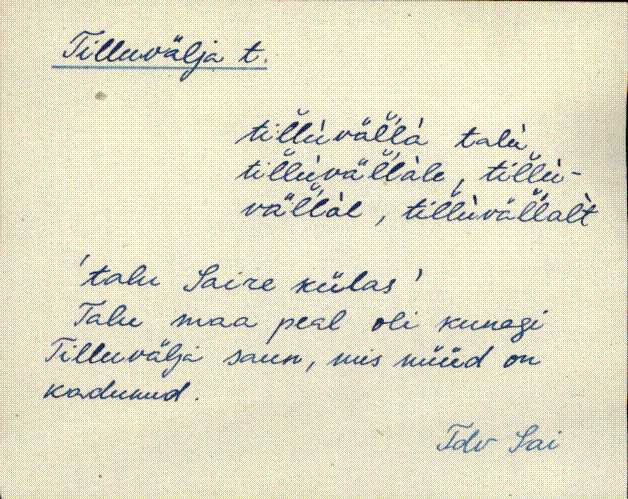 Tilluvälja t.
til̆l̆ùväl̆l̆à talù
til̆l̆ùväl̆l̆àle, til̆l̆ù-
väl̆l̆àl, til̆l̆ùväl̆l̆àl̀t
'talu Saire külas'
Talu maa peal oli kunagi
Tilluvälja saun, mis nüüd on
kadunud.
Tdv Sai